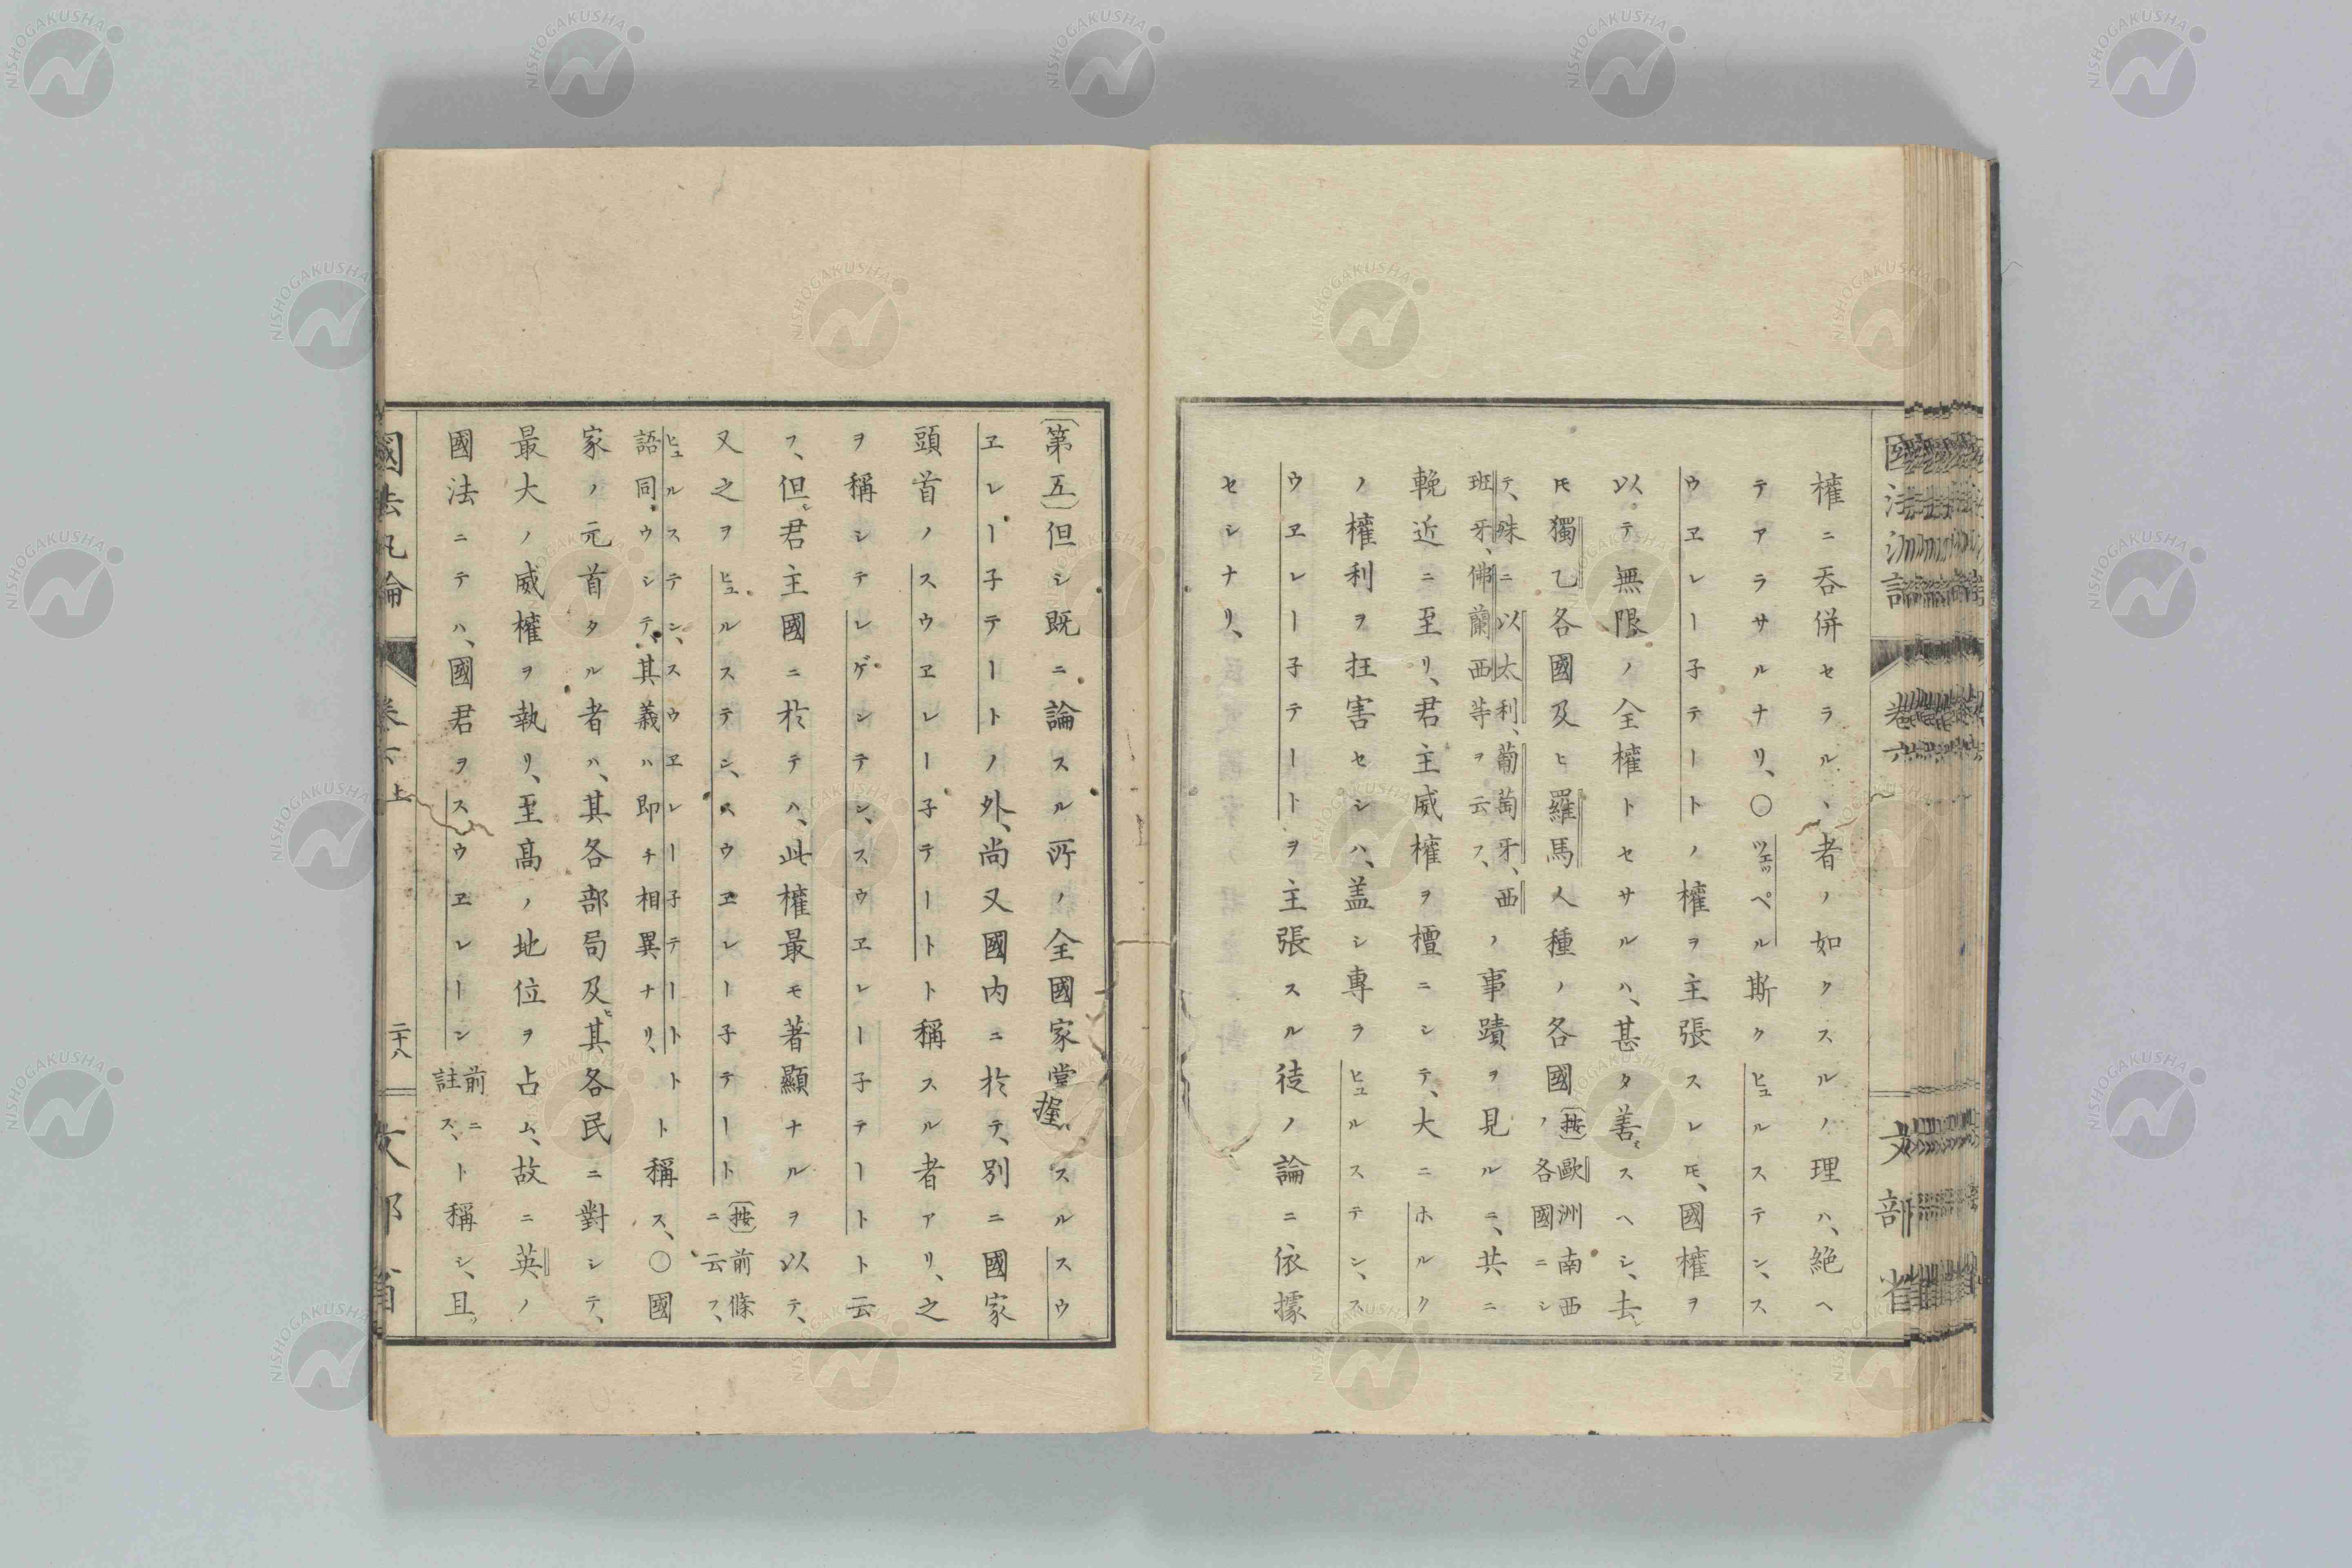 權ニ呑併セラルヽ者ノ如クスルノ理ハ、絶ヘ
テアラサルナリ、〇ツェッペル斯クヒュルステン、ス
ウヱレー子テートノ權ヲ主張スレ𪜈、國權ヲ
以テ無限ノ全權トセサルハ、甚タ善スヘシ、去
𪜈獨乙各國及ヒ羅馬人種ノ各國〔按〕歐洲南西ノ各國ニシ
テ、殊ニ以太利、葡萄牙、西班牙、佛蘭西等ヲ云フ、ノ事蹟ヲ見ルニ、共ニ
輓近ニ至リ、君主威權ヲ檀ニシテ、大ニホルク
ノ權利ヲ抂害セシハ、盖シ專ラヒュルステン、ス
ウヱレー子テートヲ主張スル徒ノ論ニ依據
セシナリ、
〔第五〕但シ既ニ論スル所ノ全國家掌握スルスウ
ヱレー子テートノ外、尚又國内ニ於テ、別ニ國家
頭首ノスウヱレー子テートト稱スル者アリ、之
ヲ稱シテレゲンテン、スウヱレー子テートト云
フ、但君主國ニ於テハ、此權最モ著顯ナルヲ以テ、
又之ヲヒュルステン、スウヱレー子テート〔按〕前條ニ云フ、
ヒュルステン、スウヱレー子テートト語同ウシテ、其義ハ即チ相異ナリ、ト稱ス、〇國
家ノ元首タル者ハ、其各部局及其各民ニ對シテ、
最大ノ威權ヲ執リ、至高ノ地位ヲ占ム、故ニ英ノ
國法ニテハ、國君ヲスウヱレーン前ニ註ス、ト稱シ、且
國法汎論
卷六上
二十八
文部省
國法汎論
卷六
文部省
NISHOGAKUSHA